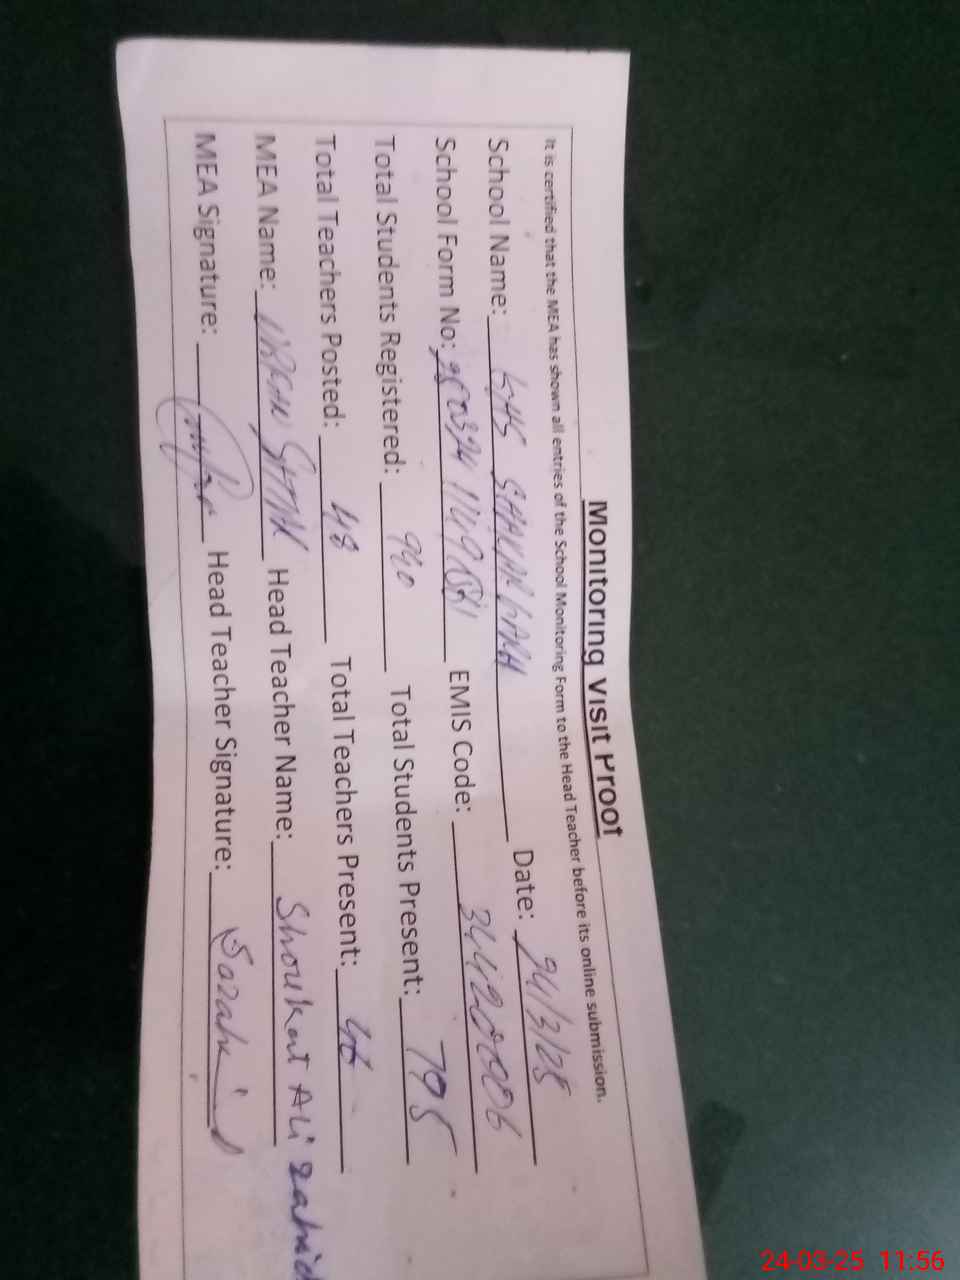 Monitoring Visit Proof
It is certified that the MEA has shown all entries of the School Monitoring Form to the Head Teacher before its online submission.
School Name: GHS SHAKAR GARH Date: 24/3/25
School Form No: EMIS Code: 34420006
Total Students Registered: 920 Total Students Present: 795
Total Teachers Posted: 48 Total Teachers Present: 46
MEA Name: Head Teacher Name: Shoukat Ali Zahid
MEA Signature: Head Teacher Signature:
24-03-25 11:56